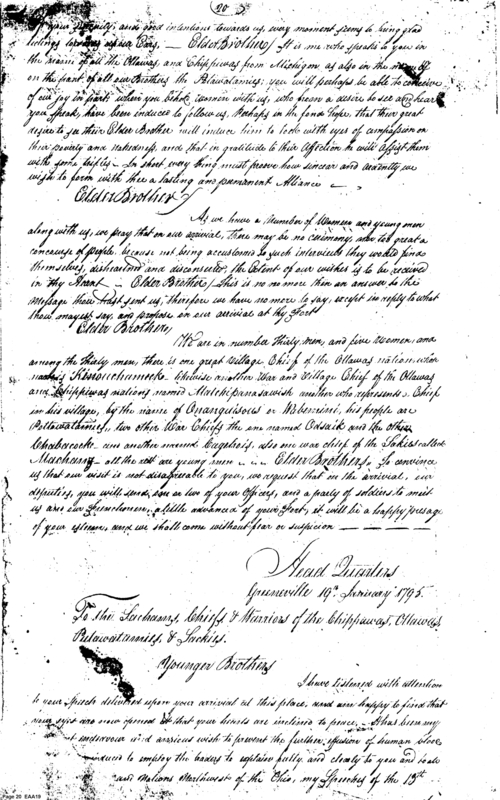 (20)
of your sincerity, and good intentions towards us, every moment seems to bring glad
tidings to our Ears, — Elder Brother/ It is me who speaks to you in
the name of all the Ottawas and Chippewas from Michigan as also in the name of
on the part of all our Brothers the Potawatamies: you will perhaps be able to conceive
of our joy in part; when you behold women with us, who from a desire to see and hear
you speak, have been induced to follow us. Perhaps in the fond hope, that their great
desire to see their Elder Brother will induce him to look with eyes of compassion on
their poverty and nakedness, and that in gratitude to their affection he will assist them
with some Gifts — In short every thing must prove how sincear and ardently we
wish to form with thee a lasting and permanent Alliance —
Elder Brother/
As we have a number of Women and young men
along with us, we pray that on our arrival, there may be no ceremony, nor too great a
concourse of people, because not being accustomed to such interviews they would find
themselves, disheartened and disconcerted, the extent of our wishes is to be received
in thy Heart — Elder Brother/ This is no more than an answer to the
message thou hast sent us, therefore we have no more to say, except in reply to what
thou mayest say, and propose on our arrival at thy Fort
Elder Brother,
We are in number thirty men, and five women, and
among the thirty men, there is one great village Chief of the Ottawas nation, who
named Kinouchamock likewise another War and Village Chief of the Ottawas
and Chippewas nations, named Matchipanasawish another who represents a Chief
in his village, by the name of his people are
Potawatamies, two other War Chiefs the one named Ossaik and the other
Chabacocke and another named also one war chief of the Sakies called
— all the rest are young men — Elder Brothers. To convince
us that our visit is not disagreeable to you, we request that on the arrival, our
deputies, you will send one or two of your Officers, and a party of soldiers to meet
us and our Frenchmen, a little advanced of your Fort, it will be a happy presage
of your esteem, and we shall come without fear or suspicion —
Head Quarters
Greeneville 19th January 1795.
To the Sachams, Chiefs & Warriors of the Chippawas, Ottawas
Potawatamies & Sackies.
Younger Brothers
I have listened with attention
to your Speech delivered upon your arrival at this place, and am happy to find that
your eyes are now opened & that your hearts are inclined to peace. It has been my
endeavour and anxious wish to prevent the further effusion of human blood
induced to employ the bearers to explain fully and clearly to you and to all
and nations Northwest of the Ohio, my Speeches of the 13th
Page 20 EAA19